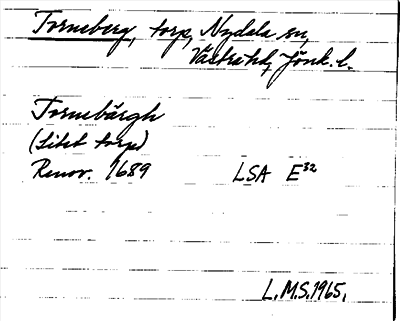 Torneberg, torp, Nydala sn,
Västra hd, Jönk. l.
Tornebärgh
(Litet torp)
Renov. 1689 LSA E³²
L.M.S. 1965.